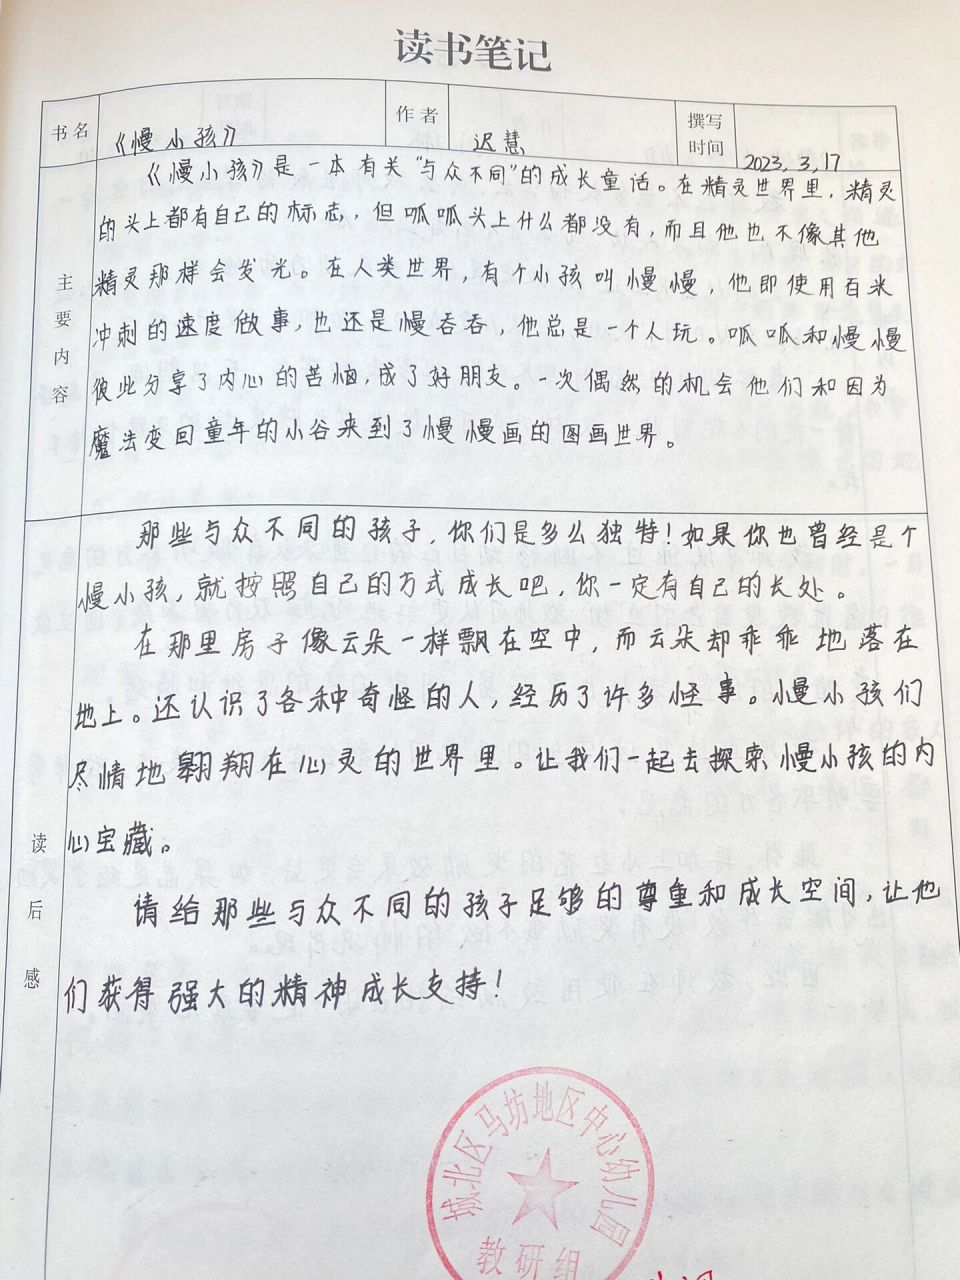 读书笔记
书名 《慢小孩》 作者 迟慧 撰写时间 2023,3,17
主要内容
《慢小孩》是一本有关“与众不同”的成长童话。在精灵世界里，精灵
的头上都有自己的标志，但呱呱头上什么都没有，而且他也不像其他
精灵那样会发光。在人类世界，有个小孩叫慢慢，他即使用百米
冲刺的速度做事，也还是慢吞吞，他总是一个人玩。呱呱和慢慢
彼此分享了内心的苦恼，成了好朋友。一次偶然的机会他们和因为
魔法变回童年的小谷来到了慢慢画的图画世界。
读后感
那些与众不同的孩子，你们是多么独特！如果你也曾经是个
慢小孩，就按照自己的方式成长吧，你一定有自己的长处。
在那里房子像云朵一样飘在空中，而云朵却乖乖地落在
地上。还认识了各种奇怪的人，经历了许多怪事。慢小孩们
尽情地翱翔在心灵的世界里。让我们一起去探索慢小孩的内
心宝藏。
请给那些与众不同的孩子足够的尊重和成长空间，让他
们获得强大的精神成长支持！
城北区马坊地区中心幼儿园
教研组